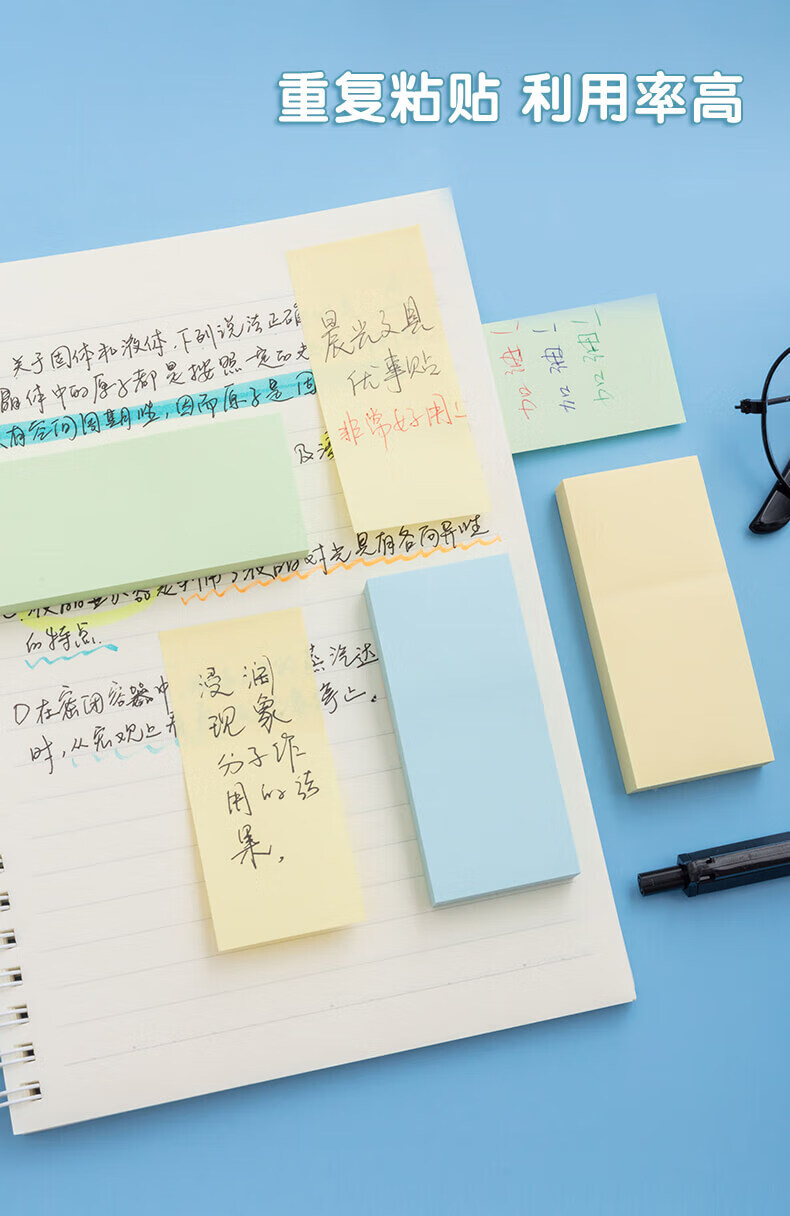 重复粘贴 利用率高
关于固体和液体,下列说法正确
晶体中的原子都是按照一定的
有各向同期性,因而原子是固
及液
晨光文具
优事贴
非常好用!
加油!
加油!
加油!
对光具有各向异性
的特点.
D在密闭容器中
蒸汽达
时,从宏观上
停止.
浸润
现象
分子作
用的结
果,